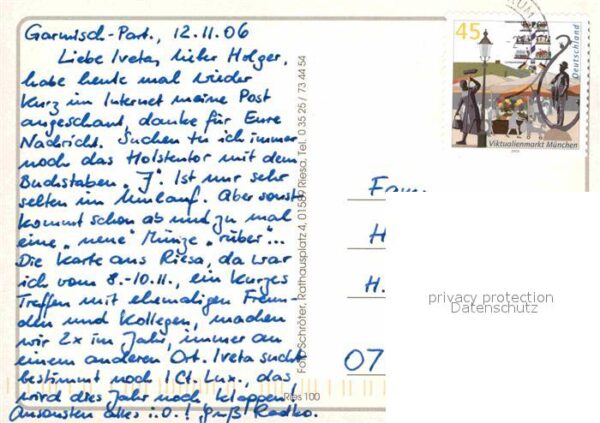 Garmisch-Part., 12.11.06
Liebe Iveta, lieber Holger,
habe heute mal wieder
kurz im Internet meine Post
angeschaut, danke für Eure
Nachricht. Suchen tu ich immer
noch das Holstentor mit dem
Buchstaben "J". Ist nur sehr
selten im Umlauf. Aber sonst
kommt schon ab und zu mal
eine "neue" Münze "rüber"...
Die Karte aus Riesa, da war
ich vom 8.-10.11., ein kurzes
Treffen mit ehemaligen Freun-
den und Kollegen, machen
wir 2x im Jahr, immer an
einem anderen Ort. Iveta sucht
bestimmt noch 1 Ct. Lux., das
wird dies Jahr noch klappen!
Ansonsten alles i.O.! Gruß Radko.
Foto Schröter, Rathausplatz 4, 01589 Riesa, Tel. 0 35 25 / 73 44 54
Ries 100
45
Deutschland
Viktualienmarkt München
Fam
H
H.
07
privacy protection
Datenschutz